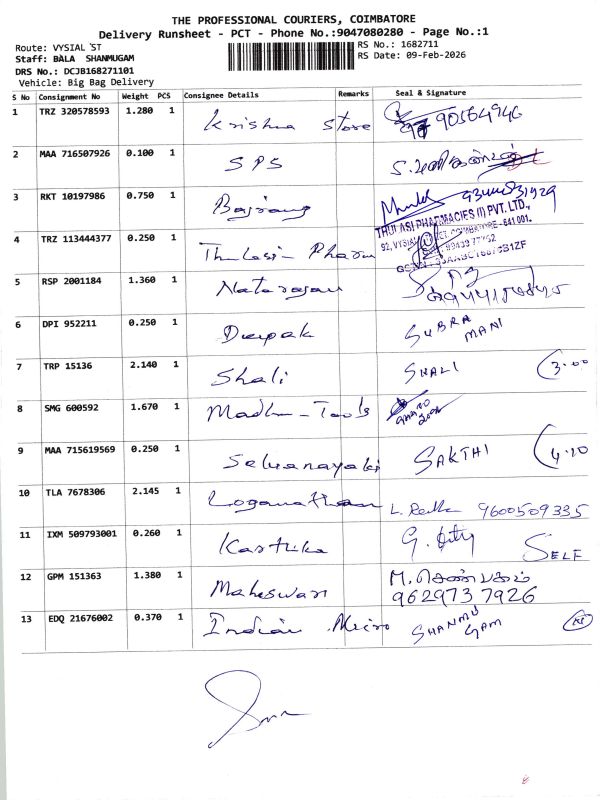 THE PROFESSIONAL COURIERS, COIMBATORE
Delivery Runsheet - PCT - Phone No.:9047080280 - Page No.:1
Route: VYSIAL ST
RS No.: 1682711
Staff: BALA SHANMUGAM
RS Date: 09-Feb-2026
DRS No.: DCJB168271101
Vehicle: Big Bag Delivery
S No Consignment No Weight PCS Consignee Details Remarks Seal & Signature
1 TRZ 320578593 1.280 1 Krishna Store 90564946
2 MAA 716507926 0.100 1 SPS
3 RKT 10197986 0.750 1 Bajrang
THULASI PHARMACIES (I) PVT. LTD.,
4 TRZ 113444377 0.250 1 Thulasi Pharm
5 RSP 2001184 1.360 1 Natarajan
6 DPI 952211 0.250 1 Deepak SUBRA
MANI
7 TRP 15136 2.140 1 Shali SHALI 3.00
8 SMG 600592 1.670 1 Madhu-Tools
9 MAA 715619569 0.250 1 Selvanayaki SAKTHI 4.20
10 TLA 7678306 2.145 1 Loganathan L. 9600509335
11 IXM 509793001 0.260 1 Karthika G. SELF
12 GPM 151363 1.380 1 Maheswari M. செண்பகம்
9629737926
13 EDQ 21676002 0.370 1 Indian Micro SHANMU
GAM